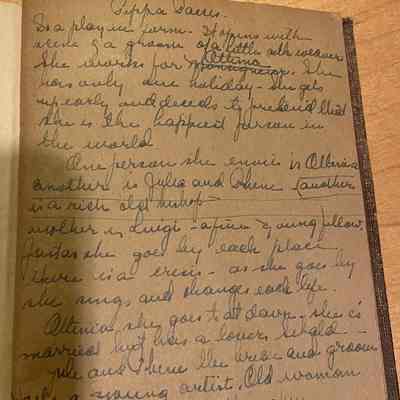 Pippa Passes.
Is a play in form. It opens with
scene of a groom of a little silk weaver
She works for Ottima. She
has only one holiday - she gets
up early and decides to pretend that
she is the happiest person in
the world
One person she envies is Ottima
another is Julia and Phene (another
is a rich old bishop
another is Luigi - a fine young fellow.
Just as she goes by each place
there is a crisis - as she goes by
she sings and changes each life.
Ottima, she goes to at dawn - she is
married but has a lover, Sebald -
and Phene the bride and groom
a young artist. Old woman